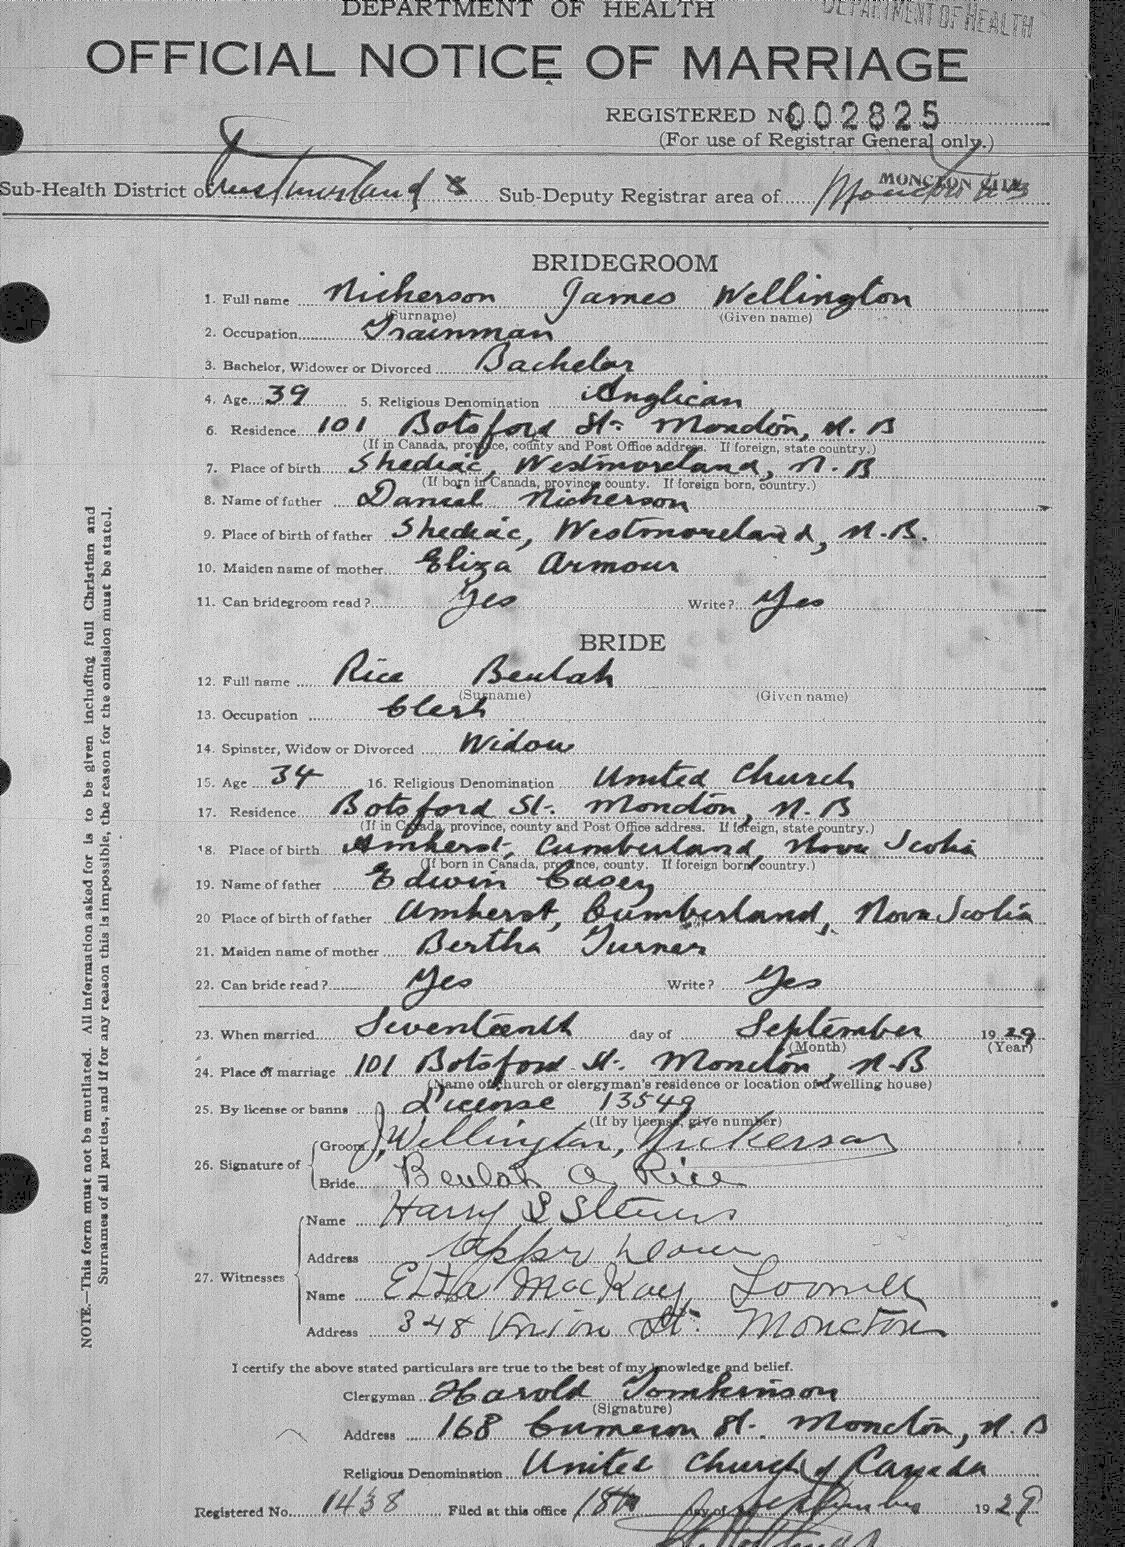 DEPARTMENT OF HEALTH
DEPARTMENT OF HEALTH
OFFICIAL NOTICE OF MARRIAGE
REGISTERED No. 002825
(For use of Registrar General only.)
Sub-Health District of Westmorland Sub-Deputy Registrar area of Moncton MONCTON CITY
BRIDEGROOM
1. Full name Nickerson James Wellington
(Surname) (Given name)
2. Occupation Trainman
3. Bachelor, Widower or Divorced Bachelor
4. Age 39 5. Religious Denomination Anglican
6. Residence 101 Botsford St. Moncton, N.B
(If in Canada, province, county and Post Office address. If foreign, state country.)
7. Place of birth Shediac, Westmoreland, N.B
(If born in Canada, province, county. If foreign born, country.)
8. Name of father Daniel Nickerson
9. Place of birth of father Shediac, Westmoreland, N.B.
10. Maiden name of mother Eliza Armour
11. Can bridegroom read? Yes Write? Yes
BRIDE
12. Full name Rice Beulah
(Surname) (Given name)
13. Occupation Clerk
14. Spinster, Widow or Divorced Widow
15. Age 34 16. Religious Denomination United Church
17. Residence Botsford St. Moncton, N.B
(If in Canada, province, county and Post Office address. If foreign, state country.)
18. Place of birth Amherst, Cumberland, Nova Scotia
(If born in Canada, province, county. If foreign born, country.)
19. Name of father Edwin Casey
20 Place of birth of father Amherst, Cumberland, Nova Scotia
21. Maiden name of mother Bertha Turner
22. Can bride read? Yes Write? Yes
23. When married Seventeenth day of September 1929
(Month) (Year)
24. Place of marriage 101 Botsford St. Moncton, N.B
(Name of church or clergyman's residence or location of dwelling house)
25. By license or banns License 13549
(If by license, give number)
26. Signature of Groom J. Wellington Nickerson
Bride Beulah A Rice
27. Witnesses
Name Harry S Steeves
Address Upper Dover
Name Etta MacKay
Address 348 Union St. Moncton
I certify the above stated particulars are true to the best of my knowledge and belief.
Clergyman Harold Tomkinson
(Signature)
Address 168 Cameron St. Moncton, N.B
Religious Denomination United Church of Canada
Registered No. 1438 Filed at this office 18th day of September 1929
NOTE.—This form must not be mutilated. All information asked for is to be given including full Christian and
Surnames of all parties, and if for any reason this is impossible, the reason for the omission must be stated.